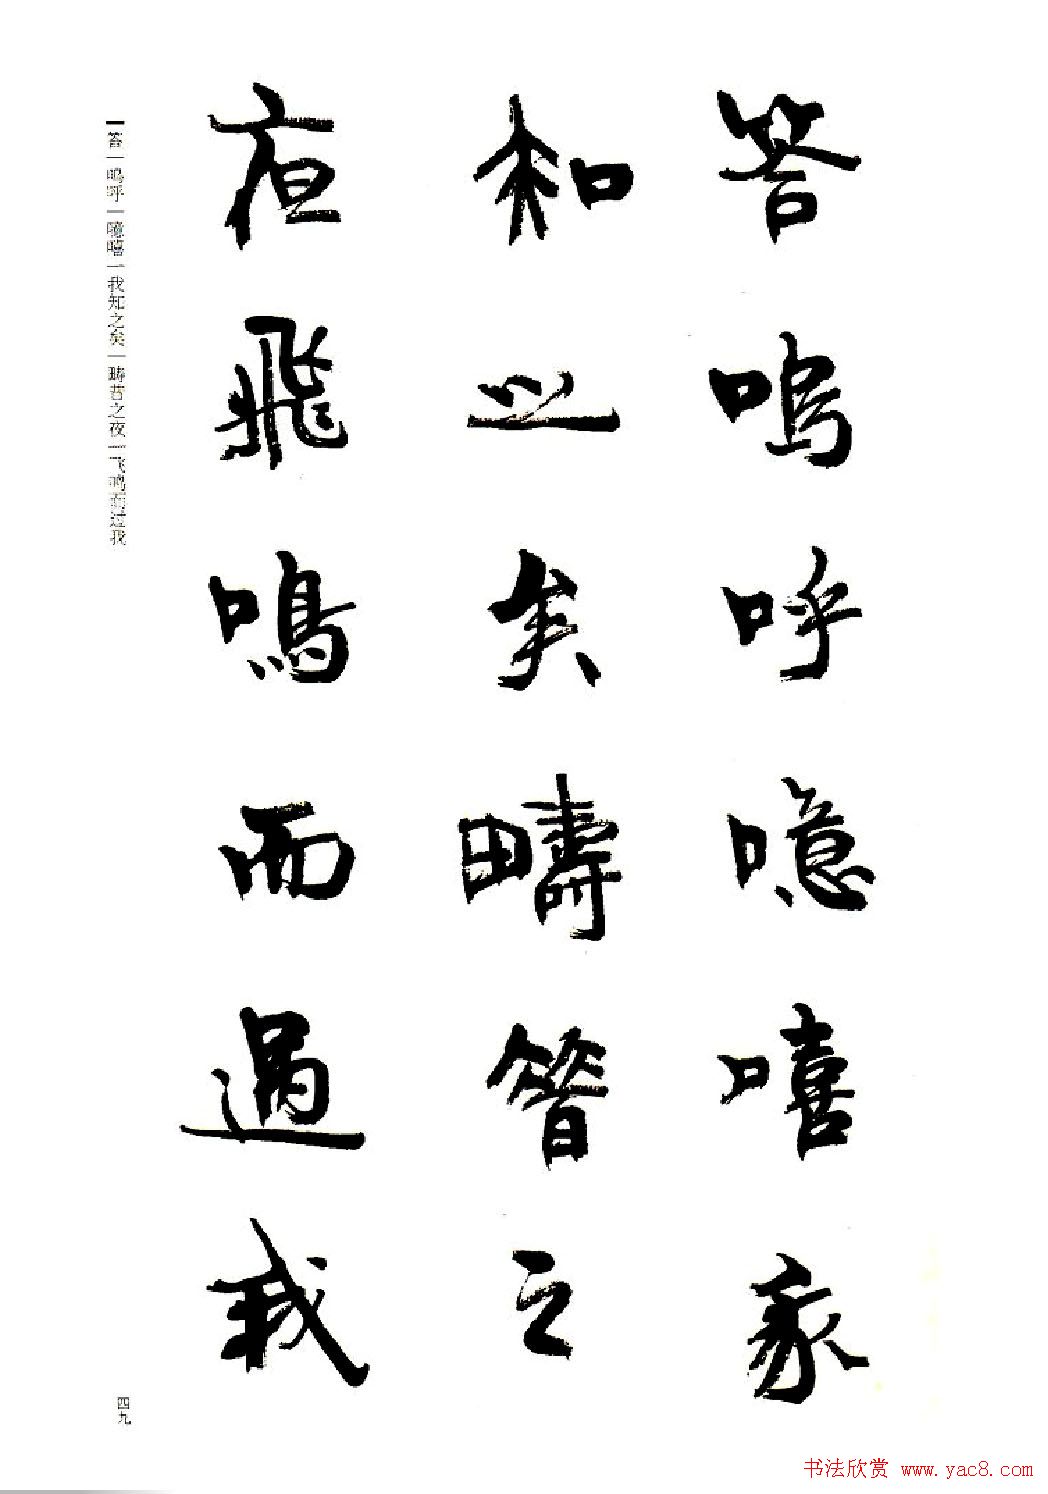 答嗚呼噫嘻我
知之矣疇昔之
夜飛鳴而過我
答｜呜呼｜噫嘻｜我知之矣｜畴昔之夜｜飞鸣而过我
四九
书法欣赏 www.yac8.com